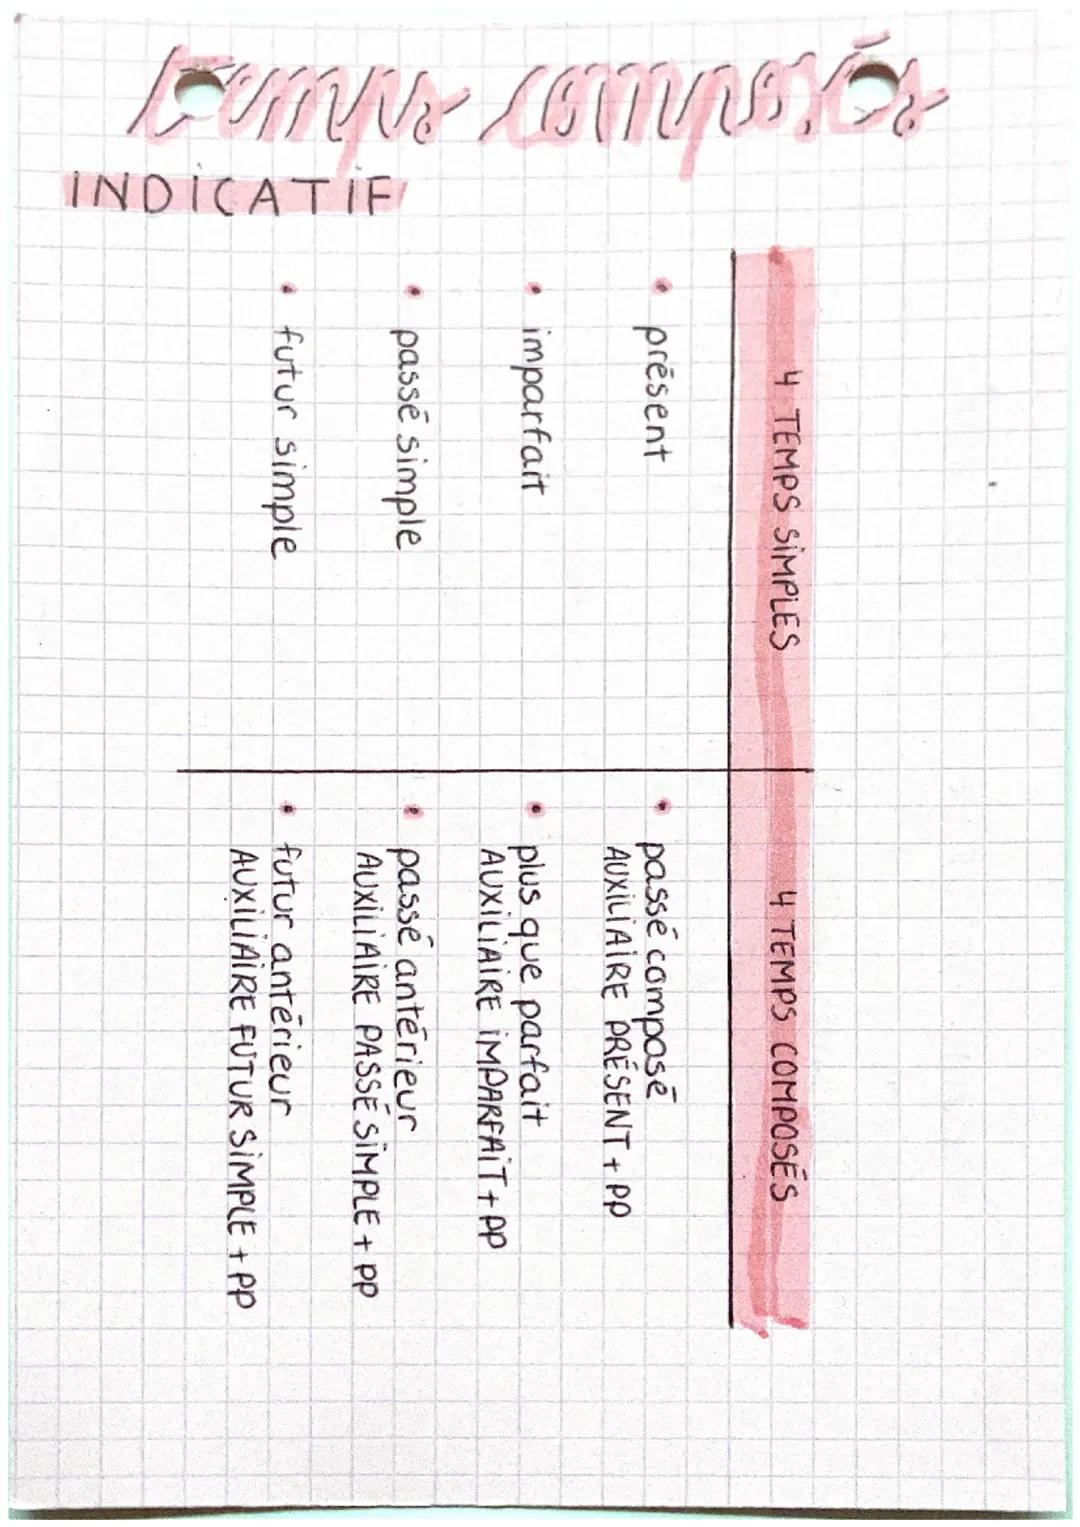 Temps composés
INDICATIF
4 TEMPS SIMPLES
4 TEMPS COMPOSÉS
• présent
• passé composé
AUXILIAIRE PRÉSENT + PP
• imparfait
• plus que parfait
AUXILIAIRE IMPARFAIT + PP
• passé simple
• passé antérieur
AUXILIAIRE PASSÉ SIMPLE + PP
• futur simple
• futur antérieur
AUXILIAIRE FUTUR SIMPLE + PP